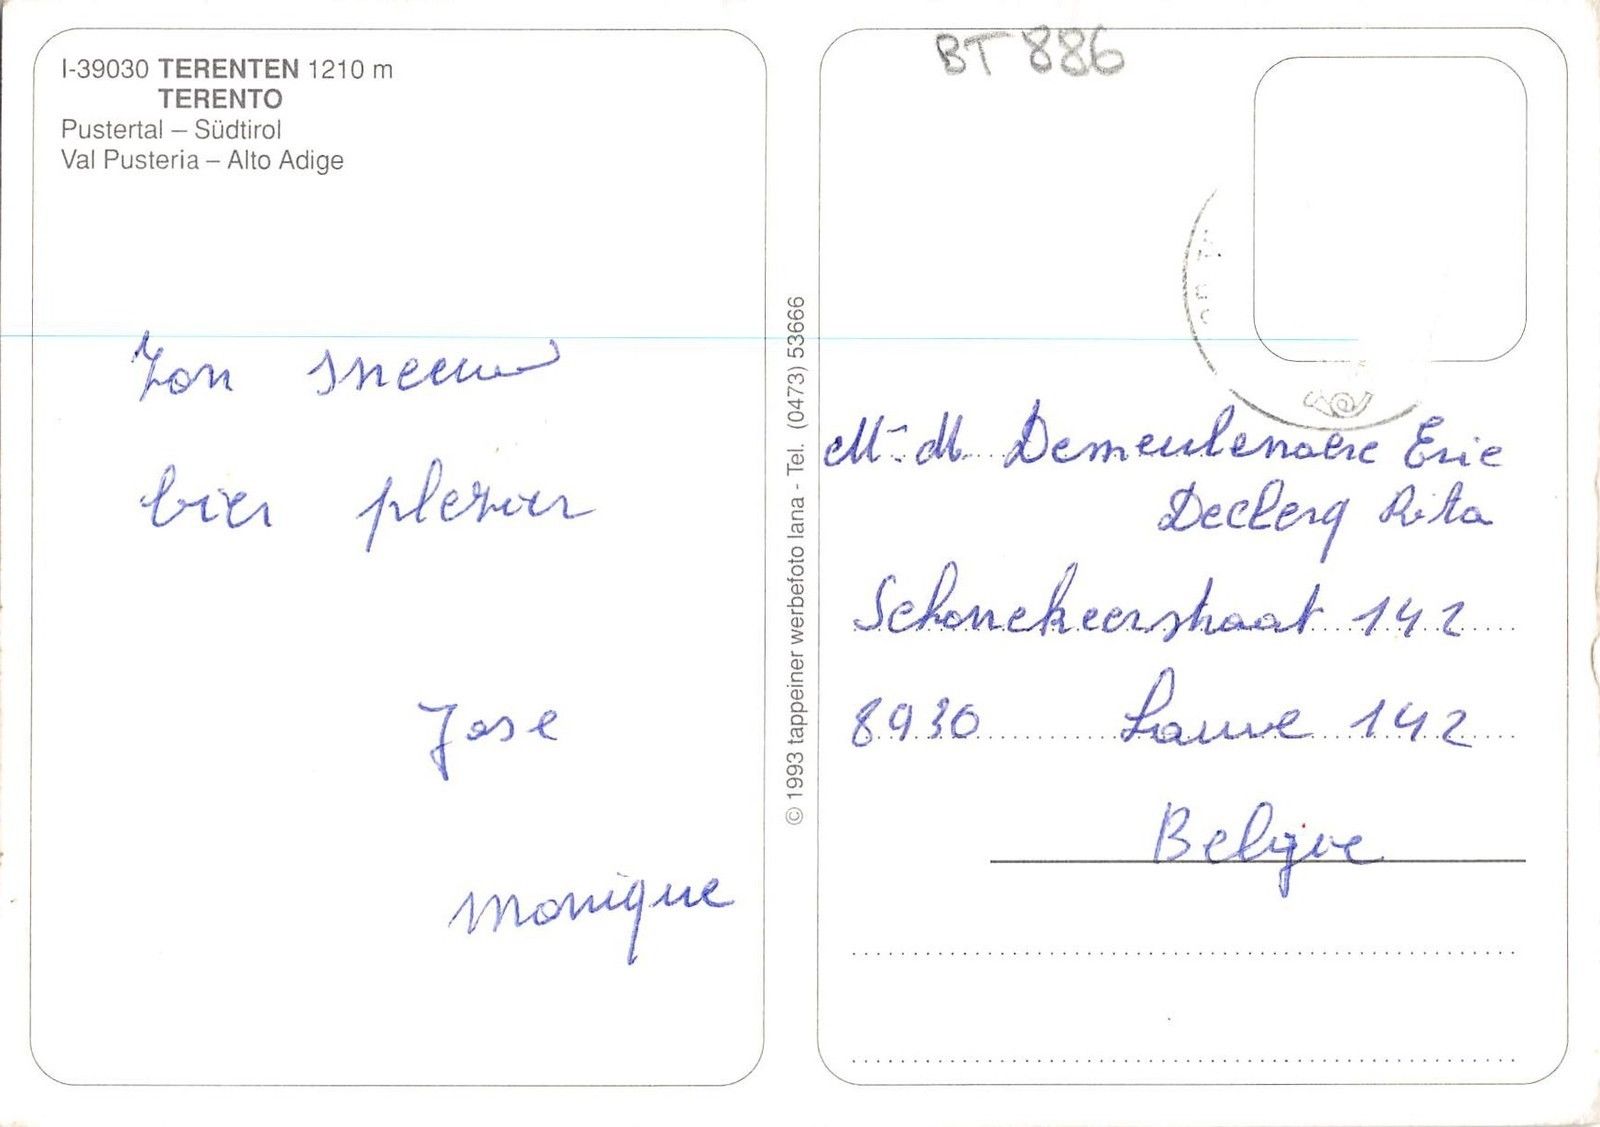 I-39030 TERENTEN 1210 m
TERENTO
Pustertal – Südtirol
Val Pusteria – Alto Adige
Zon sneeuw
bier plezier
Jose
Monique
© 1993 tappeiner werbefoto lana - Tel. (0473) 53666
BT 886
M. M. Demeulenaere Eric
Declerq Rita
Schonekeerstraat 142
8930 Lauwe 142
Belgïe